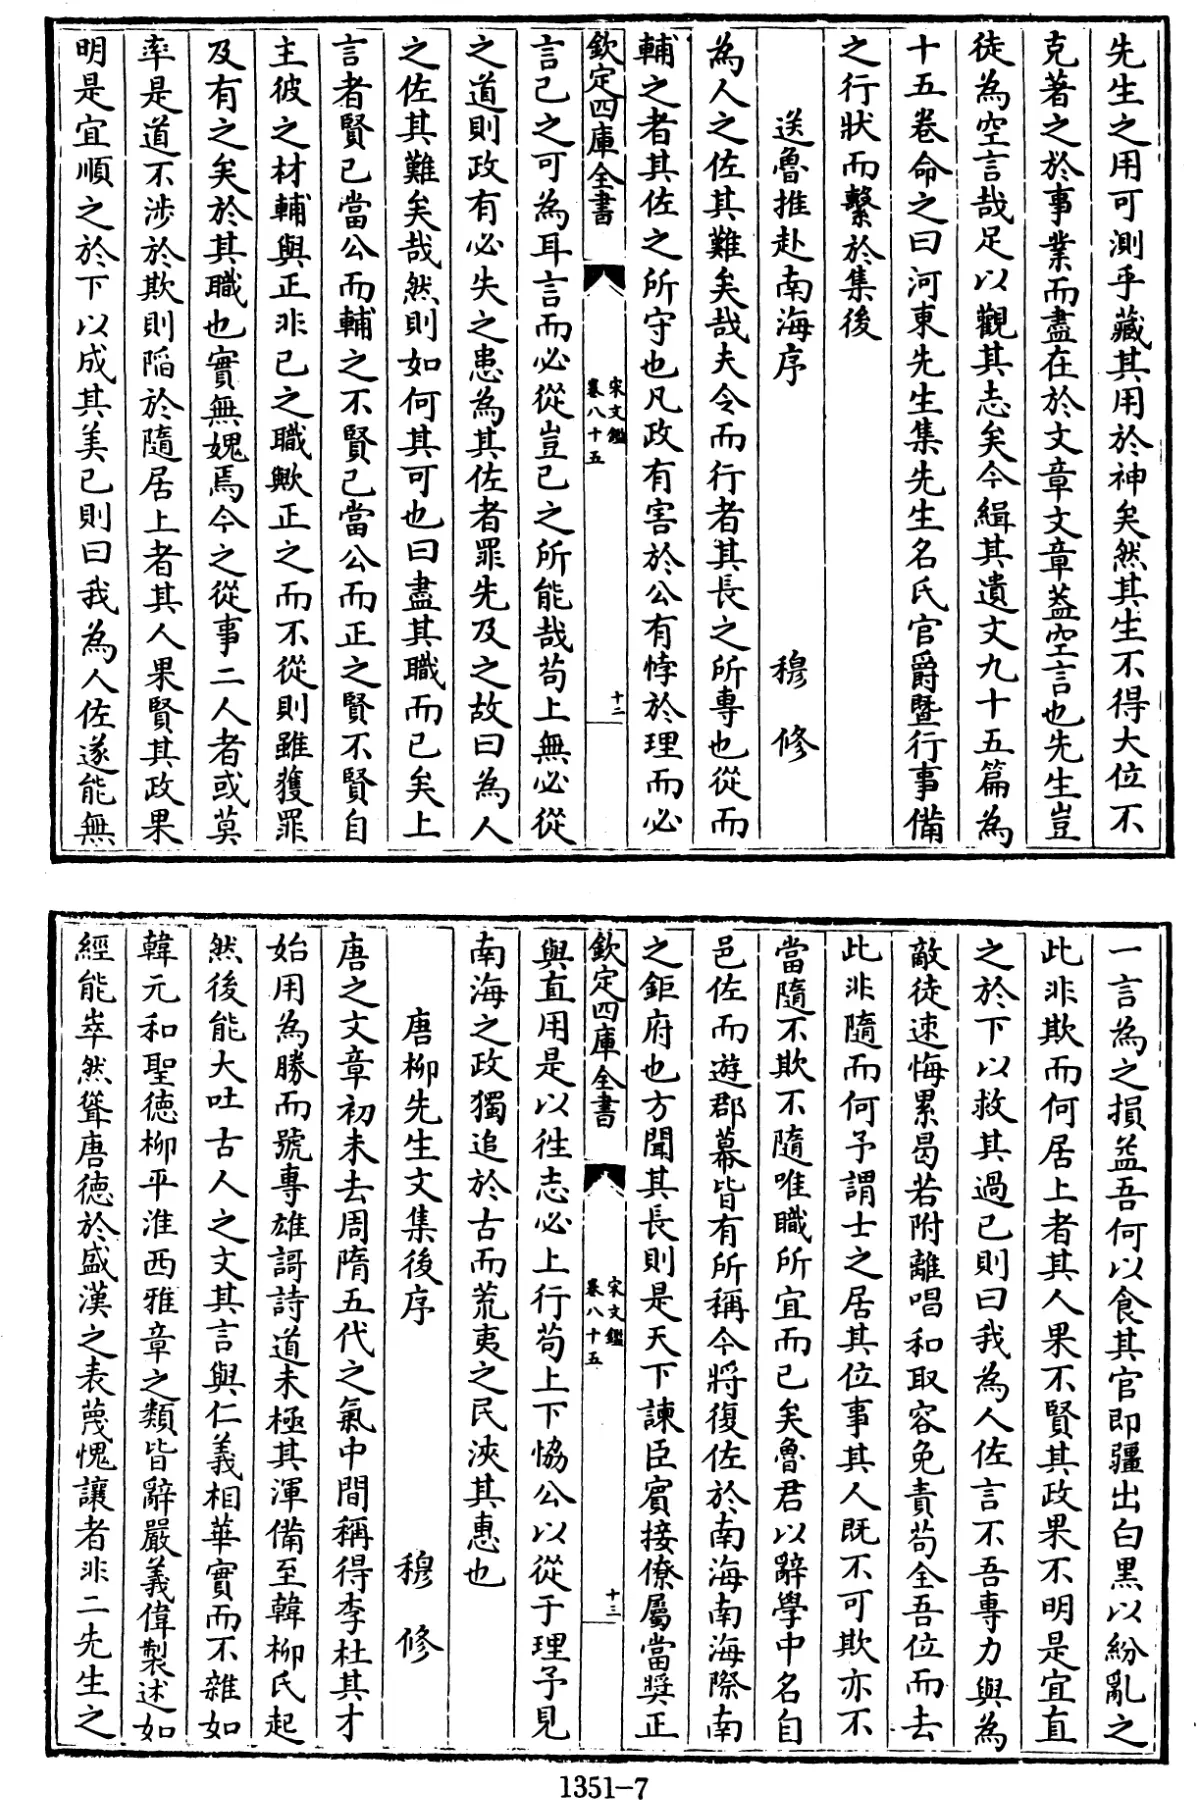 先生之用可測乎藏其用於神矣然其生不得大位不
克著之於事業而盡在於文章文章葢空言也先生豈
徒為空言哉足以觀其志矣今緝其遺文九十五篇為
十五卷命之曰河東先生集先生名氏官爵暨行事備
之行狀而繫於集後
送魯推赴南海序 穆修
為人之佐其難矣哉夫令而行者其長之所專也從而
輔之者其佐之所守也凡政有害於公有悖於理而必
欽定四庫全書 宋文鑑 卷八十五 十二
言己之可為耳言而必從豈己之所能哉苟上無必從
之道則政有必失之患為其佐者罪先及之故曰為人
之佐其難矣哉然則如何其可也曰盡其職而已矣上
言者賢已當公而輔之不賢己當公而正之賢不賢自
主彼之材輔與正非已之職歟正之而不從則雖獲罪
及有之矣於其職也實無媿焉今之從事二人者或莫
率是道不涉於欺則陷於隨居上者其人果賢其政果
明是宜順之於下以成其美已則曰我為人佐遂能無
一言為之損益吾何以食其官即疆出白黑以紛亂之
此非欺而何居上者其人果不賢其政果不明是宜直
之於下以救其過已則曰我為人佐言不吾專力與為
敵徒速悔累曷若附離唱和取容免責苟全吾位而去
此非隨而何予謂士之居其位事其人既不可欺亦不
當隨不欺不隨唯職所宜而已矣魯君以辭學中名自
邑佐而遊郡幕皆有所稱今將復佐於南海南海際南
之鉅府也方聞其長則是天下諫臣賓接僚屬當奬正
欽定四庫全書 宋文鑑 卷八十五 十三
與直用是以徃志必上行苟上下恊公以從于理予見
南海之政獨追於古而荒夷之民浹其惠也
唐柳先生文集後序 穆修
唐之文章初未去周隋五代之氣中間稱得李杜其才
始用為勝而號專雄謌詩道未極其渾備至韓柳氏起
然後能大吐古人之文其言與仁義相華實而不雜如
韓元和聖德柳平淮西雅章之類皆辭嚴義偉製述如
經能崒然聳唐德於盛漢之表蔑愧讓者非二先生之
1351-7